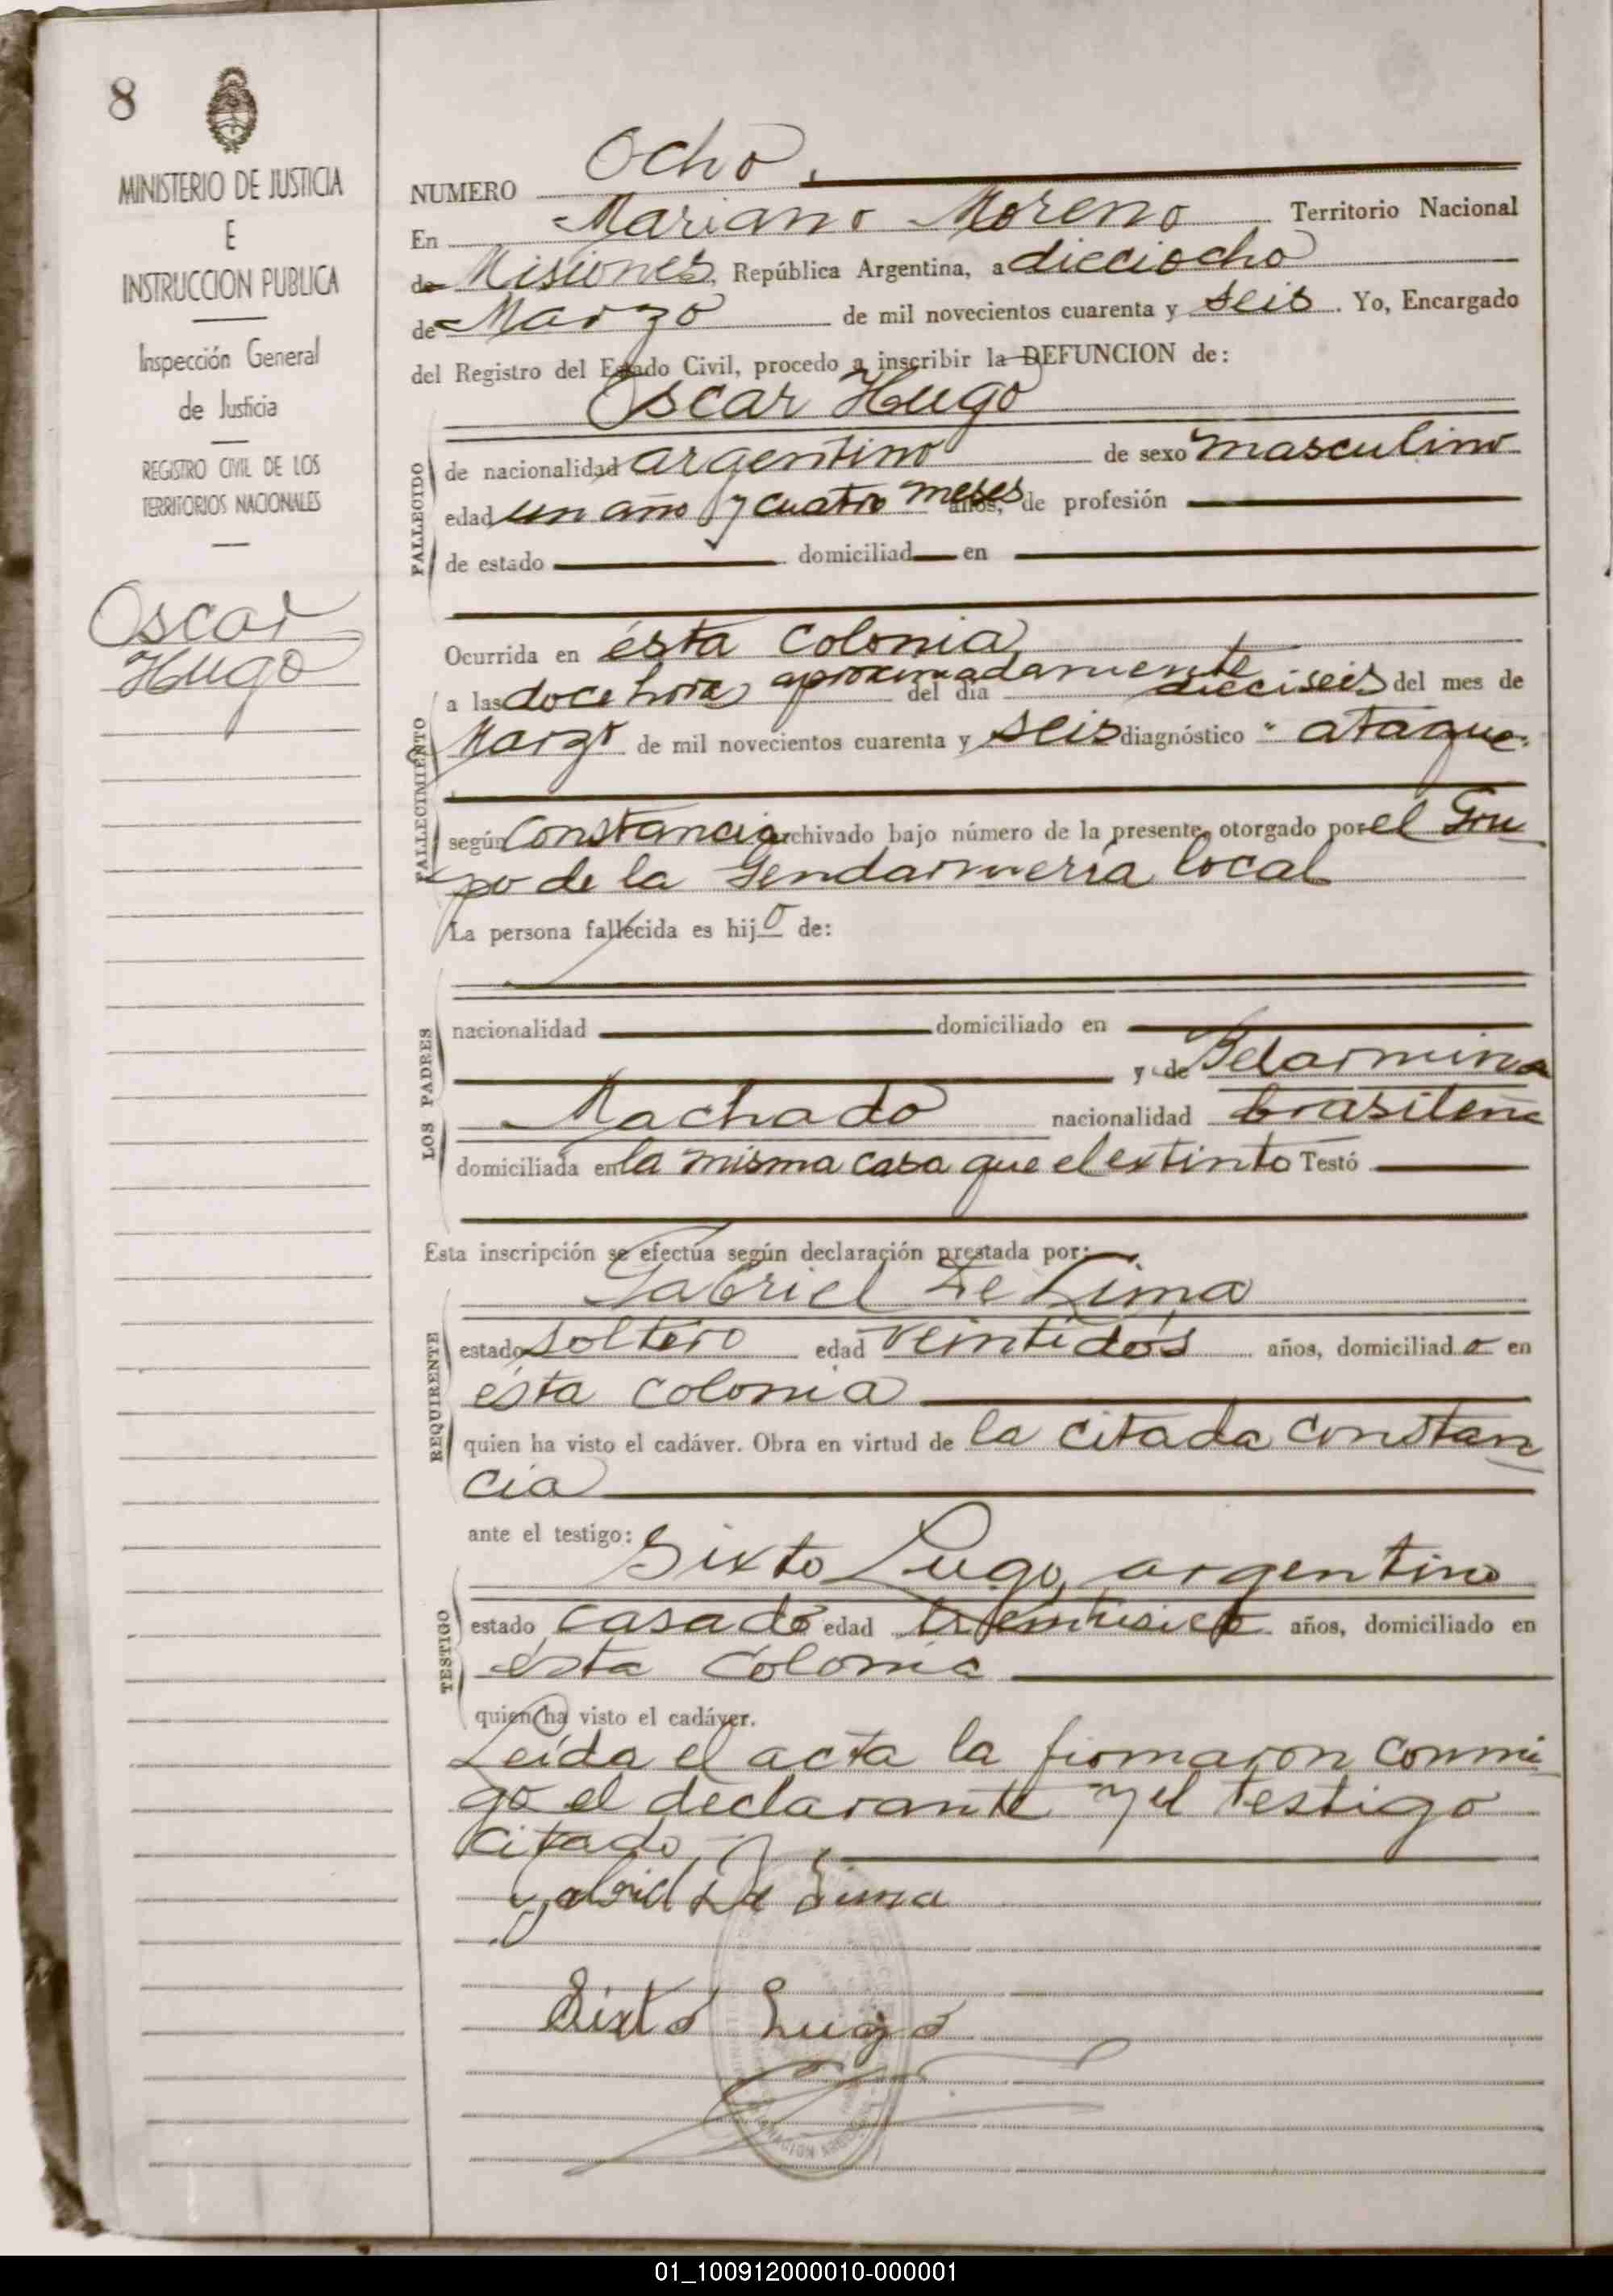 8
MINISTERIO DE JUSTICIA
E
INSTRUCCION PUBLICA
Inspección General
de Justicia
REGISTRO CIVIL DE LOS
TERRITORIOS NACIONALES
Oscar
Hugo
NUMERO Ocho.
En Mariano Moreno Territorio Nacional
de Misiones, República Argentina, a dieciocho
de Marzo de mil novecientos cuarenta y seis. Yo, Encargado
del Registro del Estado Civil, procedo a inscribir la DEFUNCION de:
Oscar Hugo
FALLECIDO
de nacionalidad argentino de sexo masculino
edad un año y cuatro meses años, de profesión
de estado domiciliad en
FALLECIMIENTO
Ocurrida en ésta Colonia
a las doce horas aproximadamente del día dieciseis del mes de
Marzo de mil novecientos cuarenta y seis diagnóstico "ataque"
según Constancia archivado bajo número de la presente, otorgado por el Gru
po de la Gendarmería local
La persona fallecida es hijo de:
LOS PADRES
nacionalidad domiciliado en
y de Belarmina
Machado nacionalidad brasileña
domiciliada en la misma casa que el extinto Testó
Esta inscripción se efectúa según declaración prestada por:
Gabriel De Lima
REQUIRENTE
estado soltero edad veintidós años, domiciliado en
ésta colonia
quien ha visto el cadáver. Obra en virtud de la citada constan
cia
ante el testigo: Sixto Lugo, argentino
TESTIGO
estado casado edad años, domiciliado en
ésta Colonia
quien ha visto el cadáver.
Leída el acta la firmaron conmi
go el declarante y el testigo
citado
Gabriel De Lima
Sixto Lugo
01_100912000010-000001